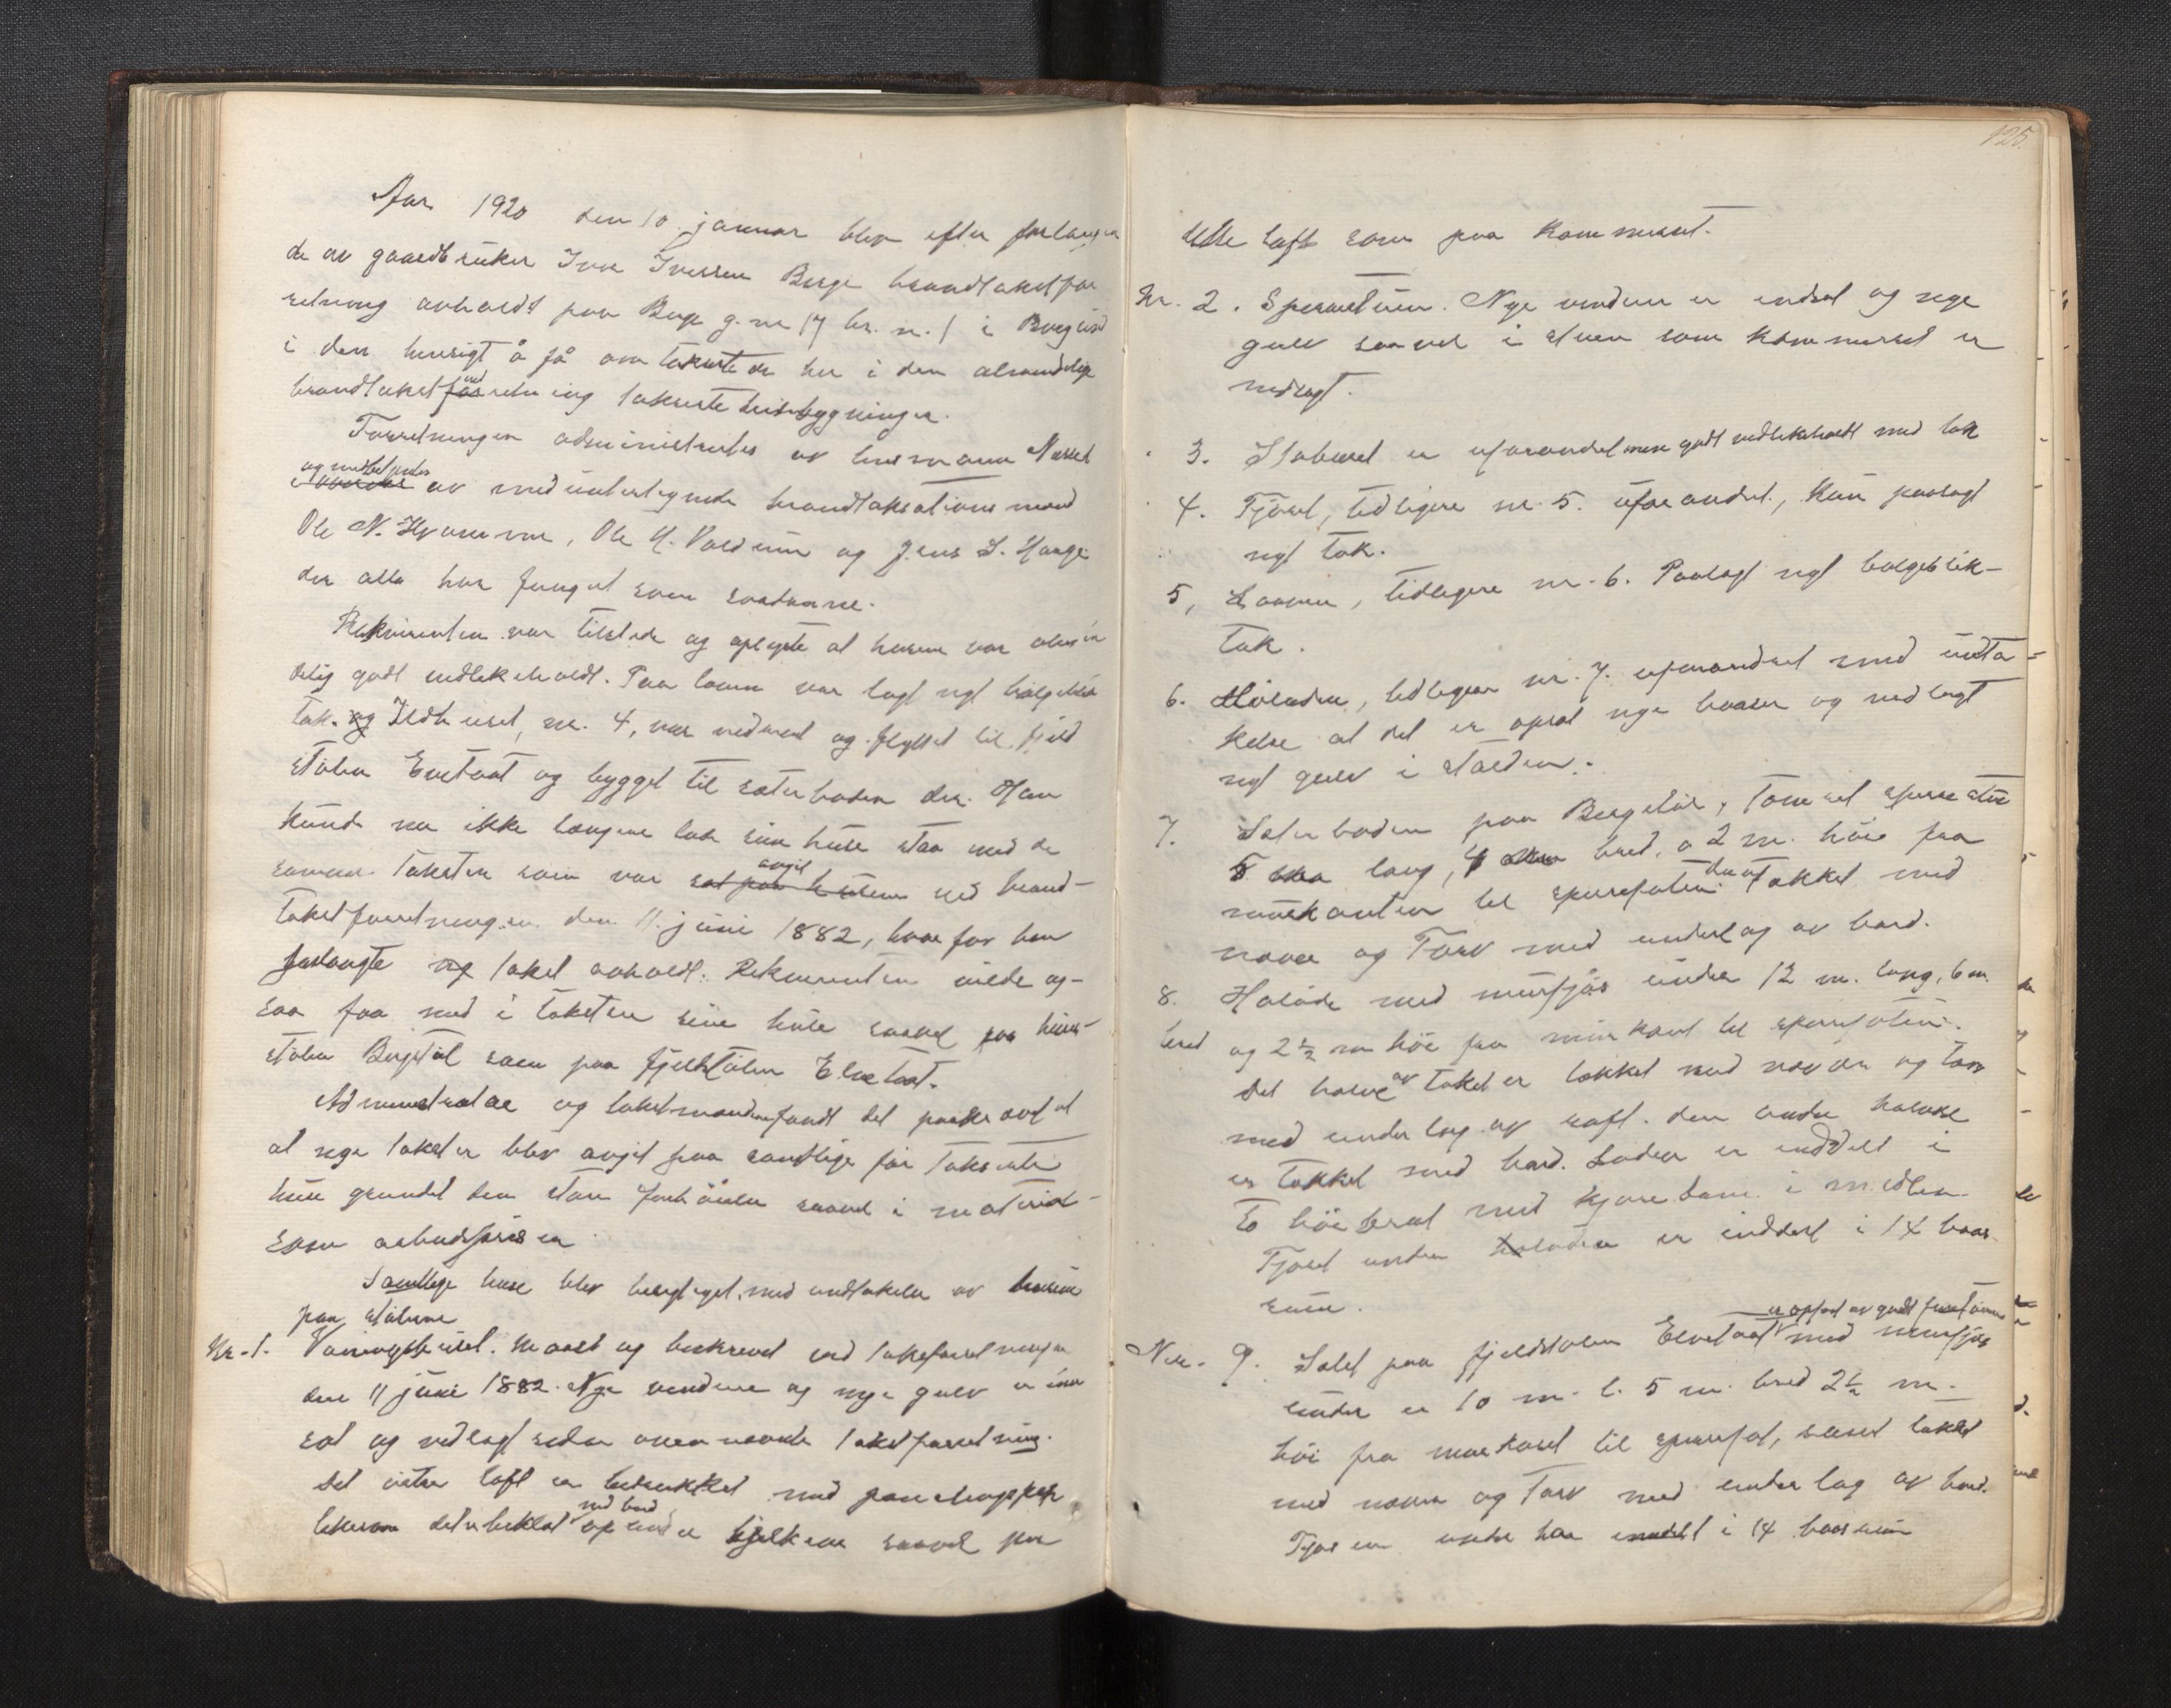 Aar 1920 den 10 januar blev efter forlangen
de av gaardbruker Iver Iversen Berge brandtakstfor
retning avholdt paa Berge g.nr 17 br. n. 1 i Borgund
i den hensigt å få om taksert de her i den almindelige
brandtakstforretning takserte husebygninger.
Forretningen administrertes av lensmann Nesset
og av medundertegnede brandtaksationsmænd
Ole N. Hvamme, Ole H. Voldum og Jens L. Hauge
der alle har fungert som saadanne.
Rekvirenten var tilstede og oplyste at husene var almin
delig godt vedlikeholdt. Paa loven var lagt nyt bølgeblik
tak. og Ildhuset, nr. 4, var nedrevet og flyttet til fjeld
stølen Elvetoot og bygget til sæterboden der. Han
kunde nu ikke længere late sine huse staa med de
samme takster som var avgit ved brand-
takstforretningen den 11. juni 1882, hvorfor han
forlangte ny takst avholdt. Rekvirenten vilde og-
saa faa med i taksten sine huse saavel paa heim-
stølen Bergstøl som paa fjellstølen Elvetoot.
Administrator og takstmændene fandt det paakrævet
at nye takster blev avgit paa samtlige før takserte
huse grundet den store forhøielse saavel i material-
som arbeidsprisen
Samtlige huse blev besigtiget, med undtakelse av husene
paa stølene
Nr. 1. Vaaningshuset. Maalt og beskrevet ved takstforretningen
den 11 juni 1882. Nye vinduer og nye gulv er inn
sat og nedlagt siden ovennævnte takstforretning.
Det østre loft er betrukket med panelingspap
likesom det er beklædt med bord op under bjelkene saavel paa
125.
Ute loft som paa kammerset.
Nr. 2. Sperrestuen. Nye vinduer er indsat og nye
gulv saavel i stuen som kammerset er
nedlagt.
3. Staburet er uforandret men godt vedlikeholdt med tak
4. Fjøset, tidligere nr. 5. uforandret, kun paalagt
nyt tak.
5, Laaven, tidligere nr. 6. Paalagt nyt bølgeblik-
tak.
6. Høladen, tidligere nr. 7. uforandret med undta-
kelse at det er opsat nye baaser og nedlagt
nyt gulv i stalden.
7. Sæterboden paa Bergstøl, tømret sperrestue
5 lang, 4 bred, o 2 m. høi fra
murkanten til sperrefoten. Den er Tækket med
næver og Torv med underlag av bord.
8. Hølade med murfjøs under 12 m. lang, 6 m.
bred og 2½ m høi fra murkant til sperrefoten.
Det halve av taket er tækket med næver og torv
med underlag av raft. den andre halvdel
er tækket med bord. Laden er inddelt i
to høiderum med kjøredam i midten.
Fjøset under høladen er inddelt i 14 baas-
rum.
Nr. 9. Sælet paa fjeldstølen Elvetoot er opført av godt furutømmer med murfjøs
under er 10 m. l. 5 m. bred 2½ m.
høi fra murkant til sperrefot, sælet tækket
med næver og Torv med underlag av bord.
Fjøsen under har inndelt i 14 baasrum